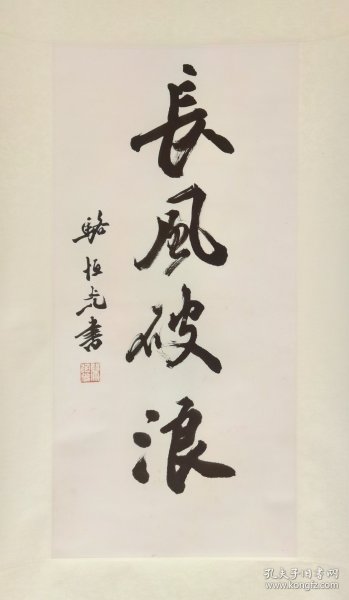 長風破浪
駱恒光書
孔夫子旧书网
www.kongfz.com